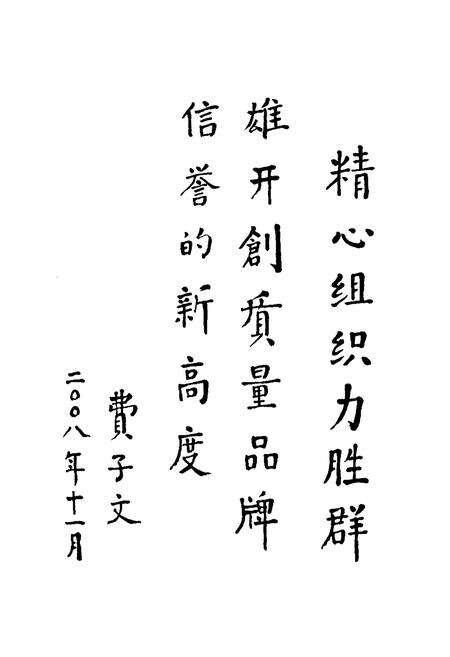 精心组织力胜群
雄开創质量品牌
信誉的新高度
費子文
二〇〇八年十一月